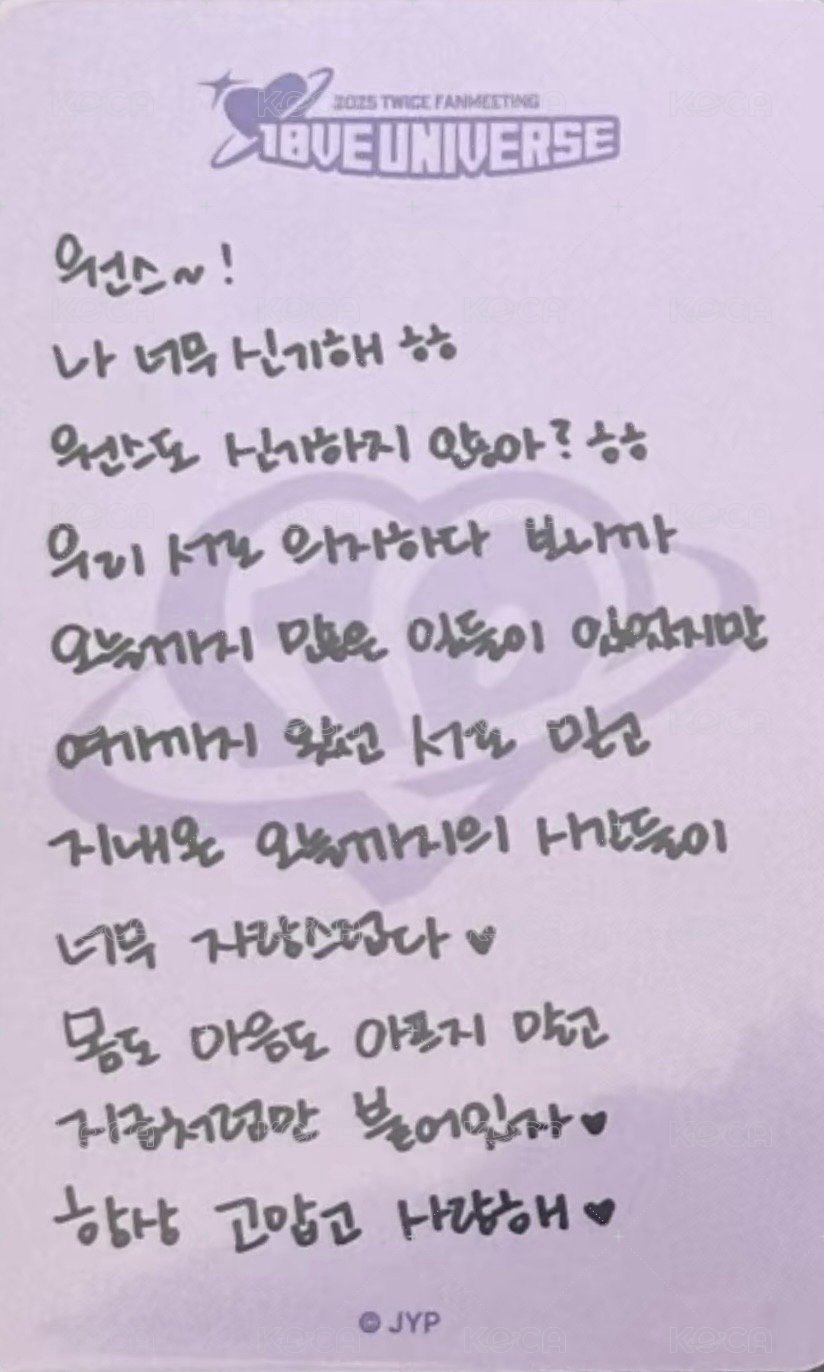 2025 TWICE FANMEETING
10VE UNIVERSE
원스~!
나 너무 신기해 ㅎㅎ
원스도 신기하지 않아? ㅎㅎ
우리 서로 의지하다 보니까
오늘까지 많은 일들이 있었지만
여기까지 왔고 서로 믿고
지내온 오늘까지의 시간들이
너무 자랑스럽다 ♥
몸도 마음도 아프지 말고
지금처럼만 붙어있자 ♥
항상 고맙고 사랑해 ♥
© JYP
KOCA